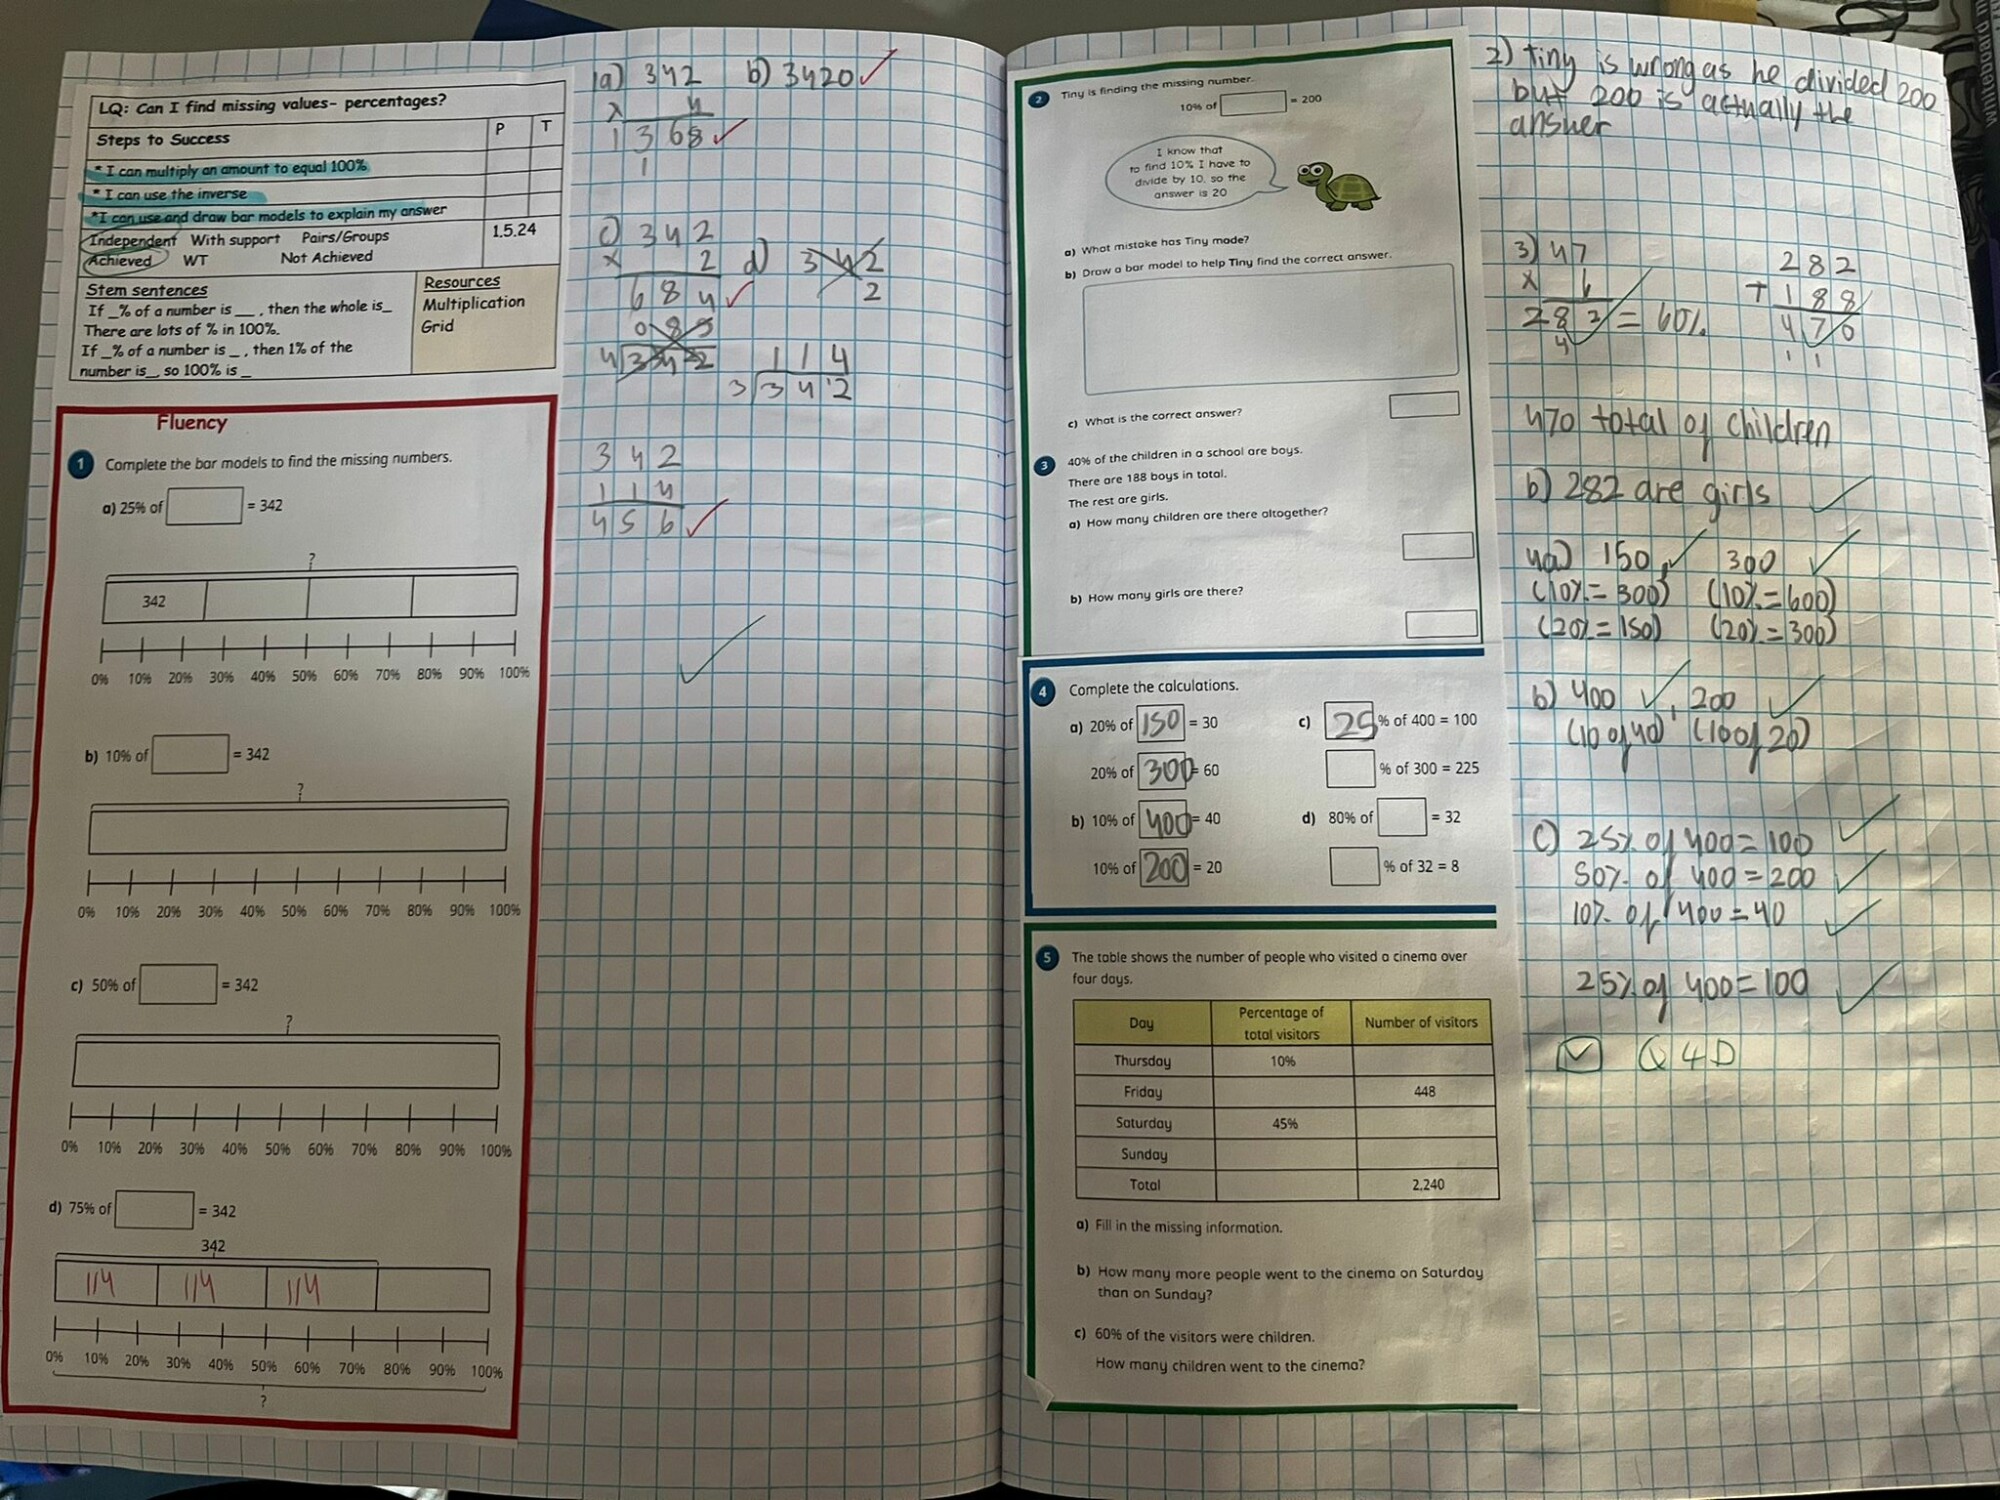 LQ: Can I find missing values- percentages?
Steps to Success
P
T
* I can multiply an amount to equal 100%
* I can use the inverse
*I can use and draw bar models to explain my answer
Independent With support Pairs/Groups
Achieved WT Not Achieved
1.5.24
Stem sentences
If _% of a number is __, then the whole is_
There are lots of % in 100%.
If _% of a number is _, then 1% of the
number is_, so 100% is _
Resources
Multiplication
Grid
Fluency
1 Complete the bar models to find the missing numbers.
a) 25% of = 342
?
342
0% 10% 20% 30% 40% 50% 60% 70% 80% 90% 100%
b) 10% of = 342
?
0% 10% 20% 30% 40% 50% 60% 70% 80% 90% 100%
c) 50% of = 342
?
0% 10% 20% 30% 40% 50% 60% 70% 80% 90% 100%
d) 75% of = 342
342
114 114 114
0% 10% 20% 30% 40% 50% 60% 70% 80% 90% 100%
?
1a) 342 b) 3420
x 4
1368
1
c) 342
x 2 d) 342
684 2
085
4 342 114
3 342
342
114
456
2 Tiny is finding the missing number.
10% of = 200
I know that
to find 10% I have to
divide by 10, so the
answer is 20
a) What mistake has Tiny made?
b) Draw a bar model to help Tiny find the correct answer.
c) What is the correct answer?
3 40% of the children in a school are boys.
There are 188 boys in total.
The rest are girls.
a) How many children are there altogether?
b) How many girls are there?
4 Complete the calculations.
a) 20% of 150 = 30 c) 25 % of 400 = 100
20% of 300 = 60 % of 300 = 225
b) 10% of 400 = 40 d) 80% of = 32
10% of 200 = 20 % of 32 = 8
5 The table shows the number of people who visited a cinema over
four days.
Day Percentage of total visitors Number of visitors
Thursday 10%
Friday 448
Saturday 45%
Sunday
Total 2,240
a) Fill in the missing information.
b) How many more people went to the cinema on Saturday
than on Sunday?
c) 60% of the visitors were children.
How many children went to the cinema?
2) Tiny is wrong as he divided 200
but 200 is actually the
answer
3) 47 282
x 6 + 188
282 = 60% 470
4 1 1
470 total of children
b) 282 are girls
4a) 150, 300
(10% = 300) (10% = 600)
(20% = 150) (20% = 300)
b) 400, 200
(10 of 40) (10 of 20)
c) 25% of 400 = 100
50% of 400 = 200
10% of 400 = 40
25% of 400 = 100
Q4D